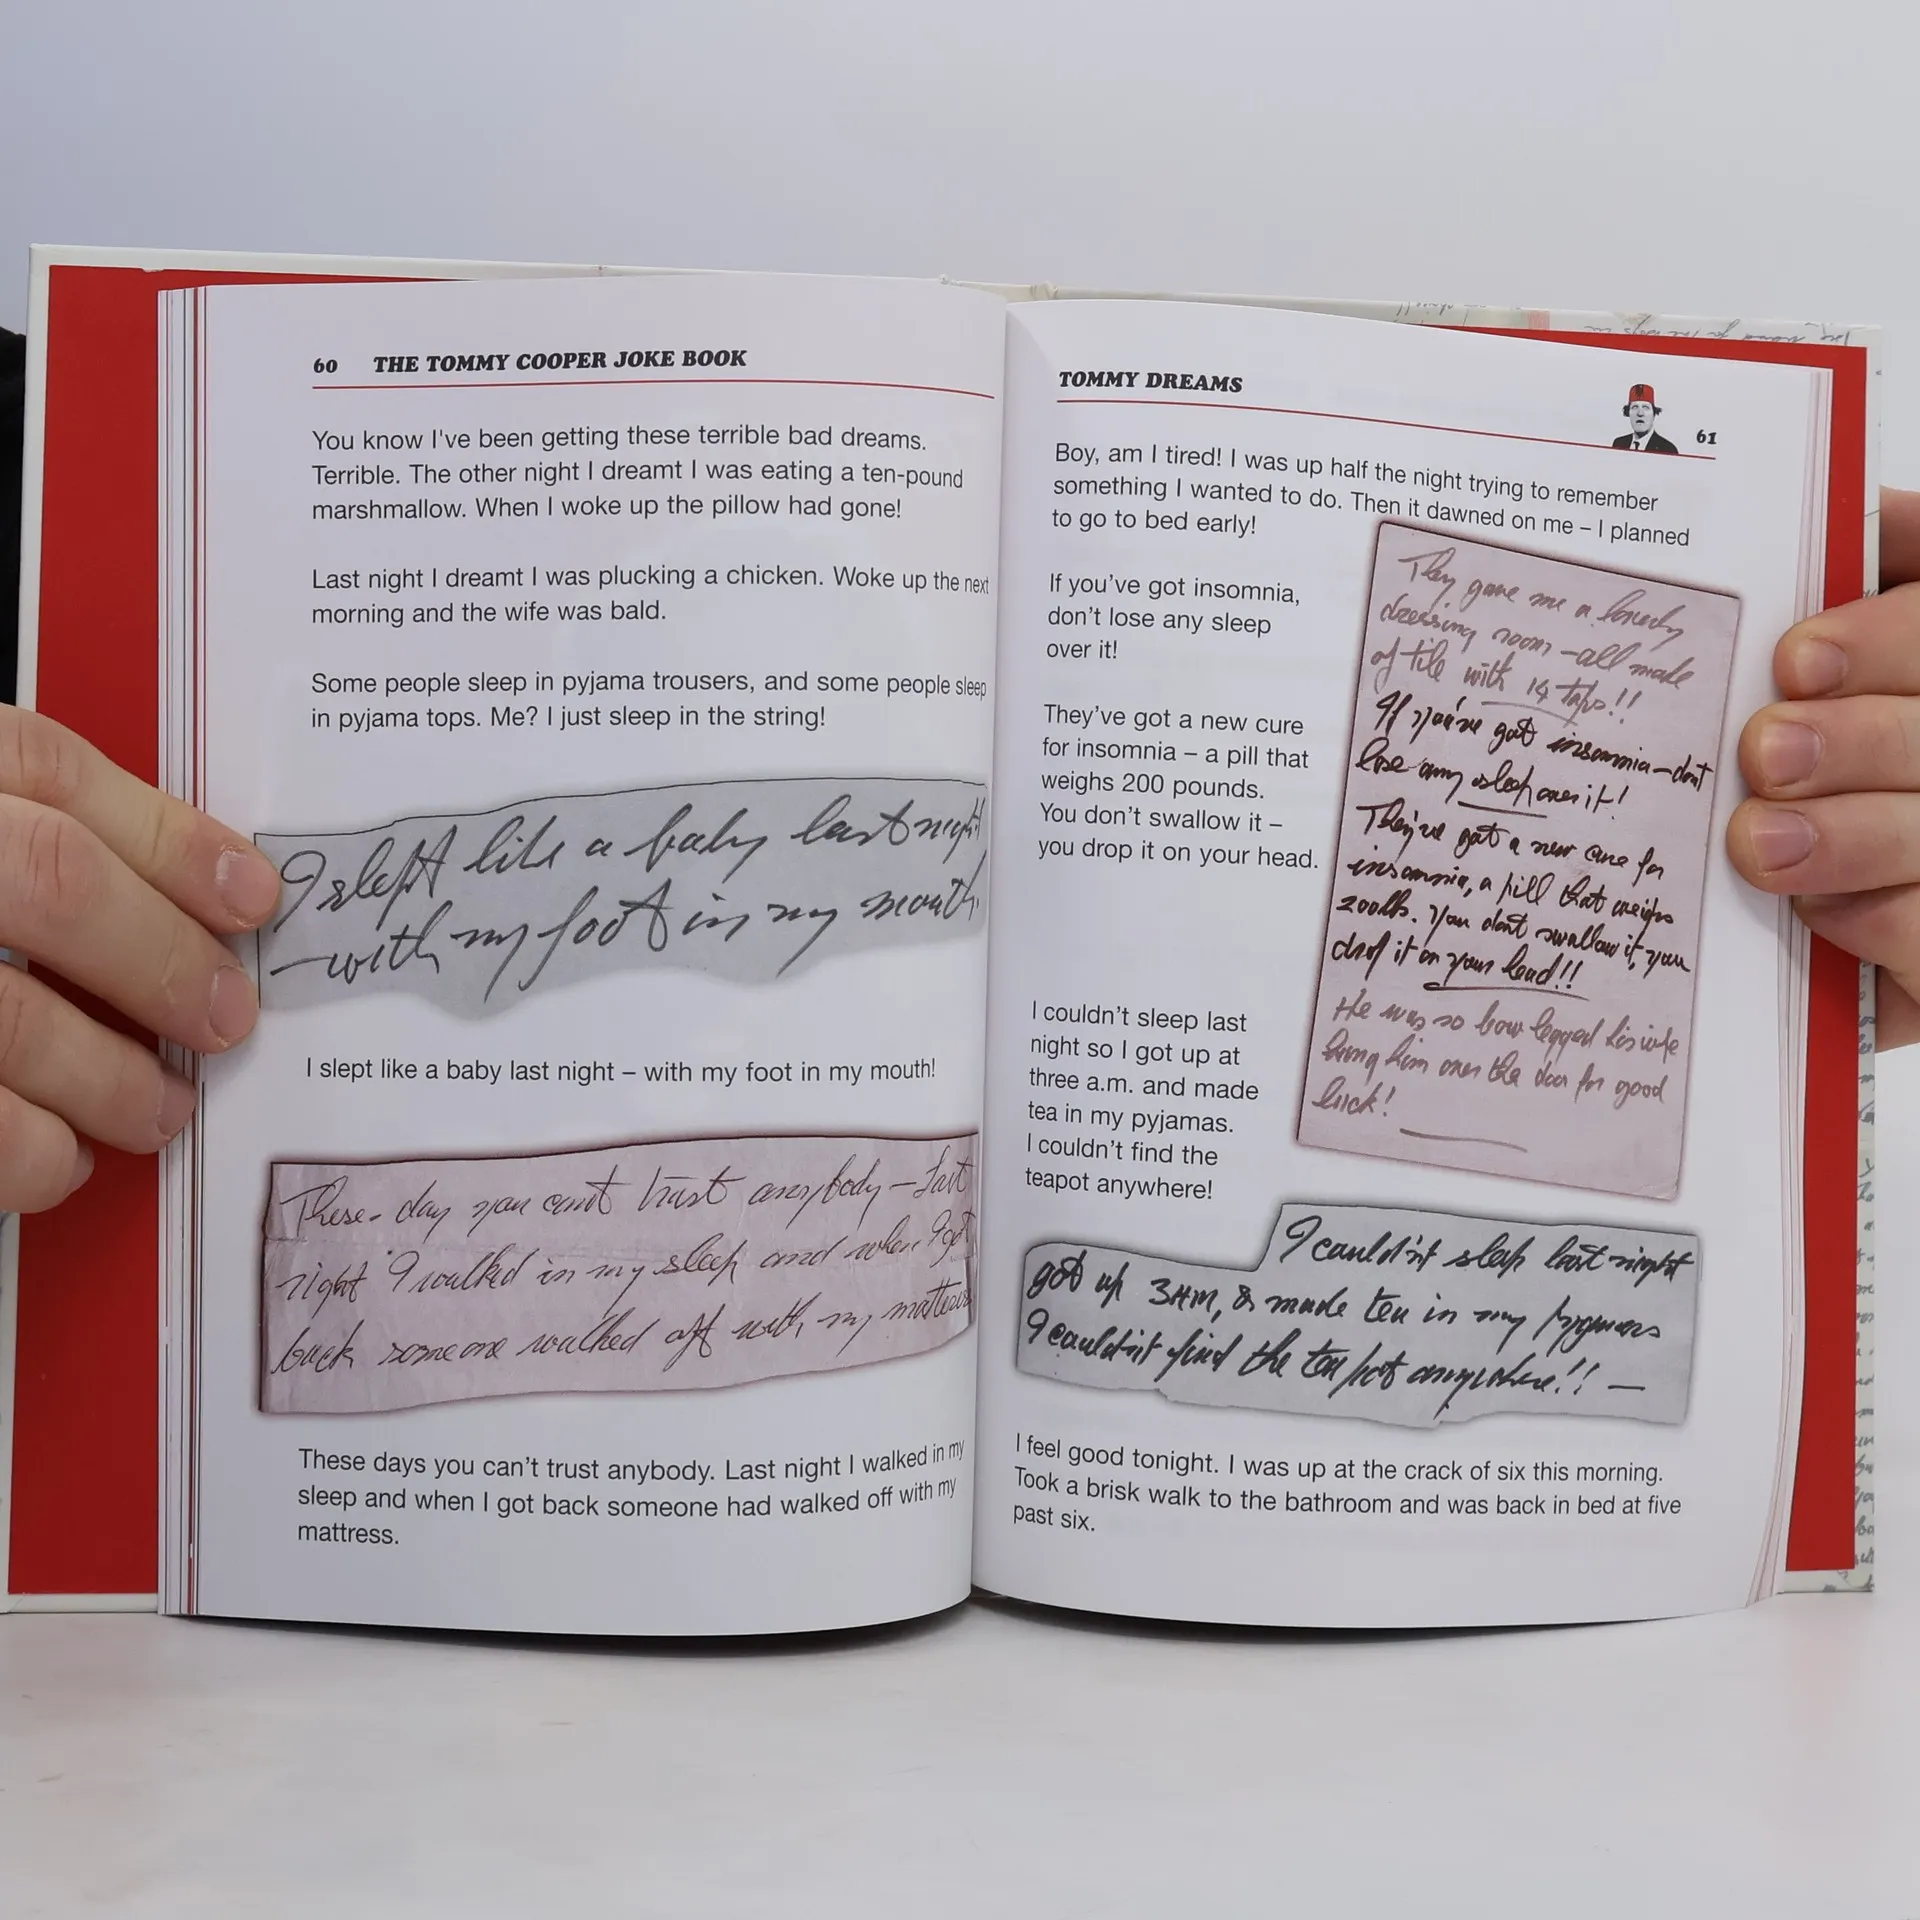 60 THE TOMMY COOPER JOKE BOOK
You know I've been getting these terrible bad dreams.
Terrible. The other night I dreamt I was eating a ten-pound
marshmallow. When I woke up the pillow had gone!
Last night I dreamt I was plucking a chicken. Woke up the next
morning and the wife was bald.
Some people sleep in pyjama trousers, and some people sleep
in pyjama tops. Me? I just sleep in the string!
I slept like a baby last night
– with my foot in my mouth
I slept like a baby last night – with my foot in my mouth!
These day you cant trust anybody – Last
night I walked in my sleep and when I got
back someone walked off with my mattress
These days you can't trust anybody. Last night I walked in my
sleep and when I got back someone had walked off with my
mattress.
TOMMY DREAMS
61
Boy, am I tired! I was up half the night trying to remember
something I wanted to do. Then it dawned on me – I planned
to go to bed early!
If you've got insomnia,
don't lose any sleep
over it!
They've got a new cure
for insomnia – a pill that
weighs 200 pounds.
You don't swallow it –
you drop it on your head.
I couldn't sleep last
night so I got up at
three a.m. and made
tea in my pyjamas.
I couldn't find the
teapot anywhere!
They gave me a
dressing room – all made
of tile with 14 taps!!
If you've got insomnia – dont
lose any sleep over it!
They've got a new cure for
insomnia, a pill that weighs
200lbs. you dont swallow it, you
drop it on your head!!
He was so bow legged his wife
hung him over the door for good
luck!
I couldn't sleep last night
got up 3AM, & made tea in my
I couldn't find the tea pot anywhere!! —
I feel good tonight. I was up at the crack of six this morning.
Took a brisk walk to the bathroom and was back in bed at five
past six.